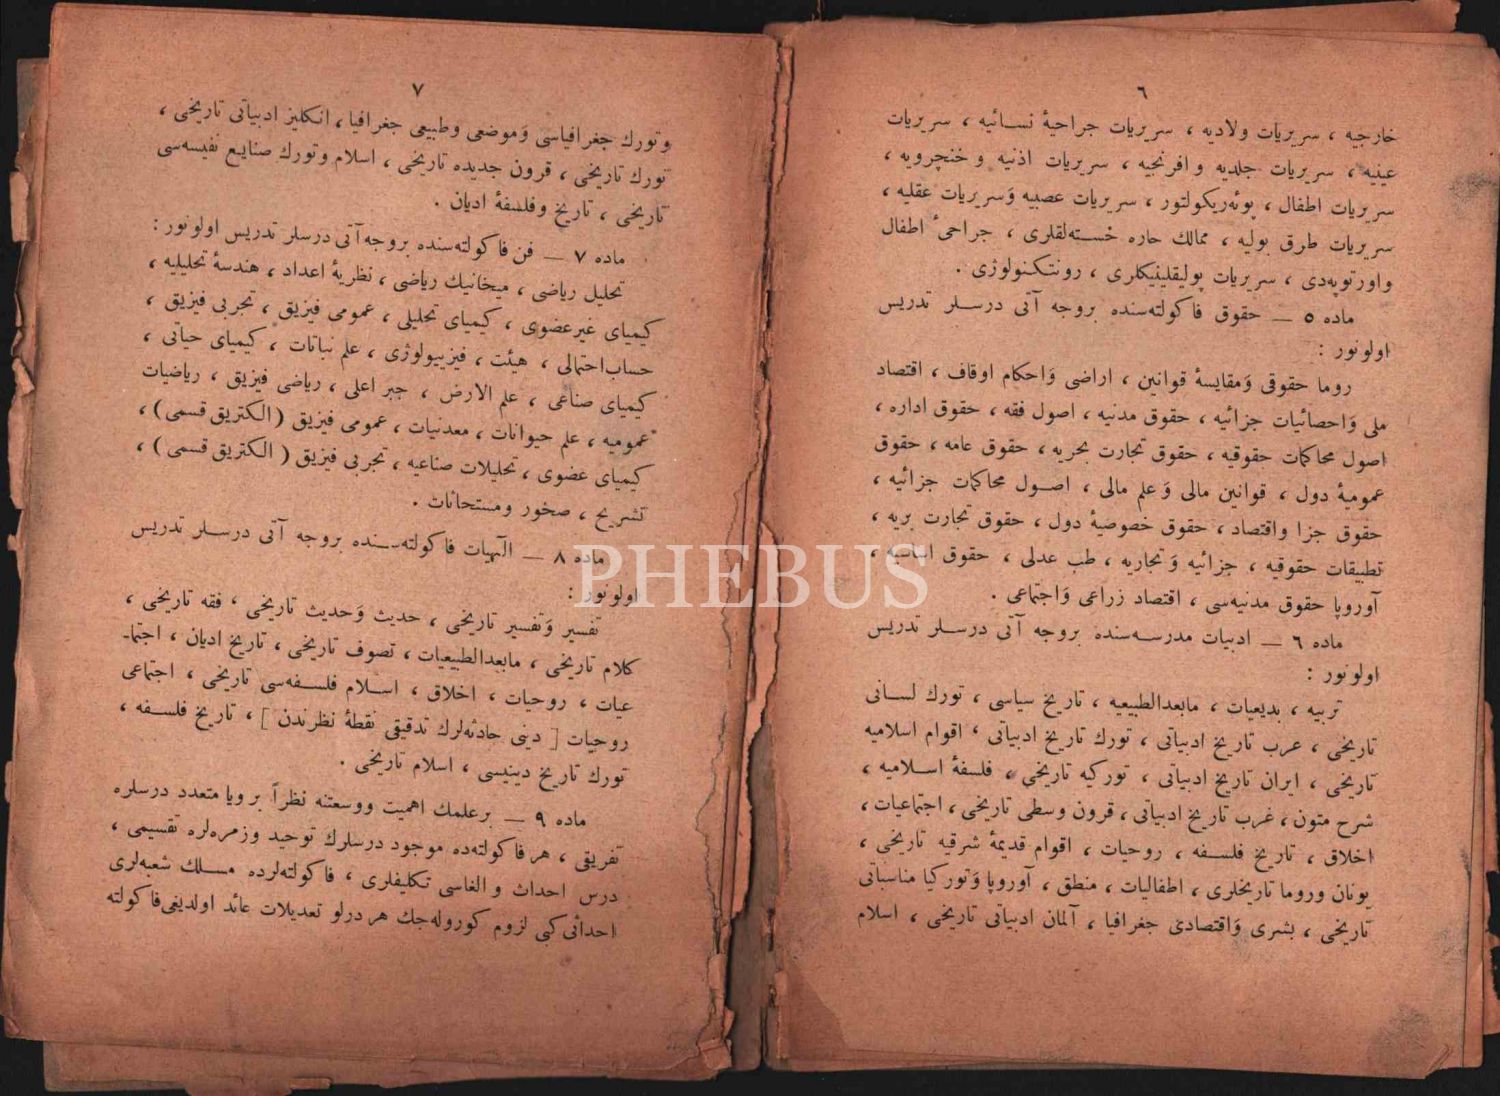 ٦
خارجیه ، سریریات ولادیه ، سریریات جراحیهٔ نسائیه ، سریریات
عینیه ، سریریات جلدیه و افرنجیه ، سریریات اذنیه و خنچرویه ،
سریریات اطفال ، پوئه‌ریكولتور ، سریریات عصبیه وَسریریات عقلیه ،
سریریات طرق بولیه ، ممالك حاره خسته‌لقلری ، جراحیٔ اطفال
واورتوپه‌دی ، سریریات پولیقلینیكلری ، رونتكنولوژی .
ماده ٥ — حقوق فاكولته‌سنده بروجه آتی درسلر تدریس
اولونور :
روما حقوقی وَمقایسهٔ قوانین ، اراضی وَاحكام اوقاف ، اقتصاد
ملی وَاحصائیات جزائیه ، حقوق مدنیه ، اصول فقه ، حقوق اداره ،
اصول محاكمات حقوقیه ، حقوق تجارت بحریه ، حقوق عامه ، حقوق
عمومیهٔ دول ، قوانین مالی وَ علم مالی ، اصول محاكمات جزائیه ،
حقوق جزا واقتصاد ، حقوق خصوصیهٔ دول ، حقوق تجارت بریه ،
تطبیقات حقوقیه ، جزائیه وَ تجاریه ، طب عدلی ، حقوق اساسیه ،
آوروپا حقوق مدنیه‌سی ، اقتصاد زراعی وَاجتماعی .
ماده ٦ — ادبیات مدرسه‌سنده بروجه آتی درسلر تدریس
اولونور :
تربیه ، بدیعیات ، مابعدالطبیعیه ، تاریخ سیاسی ، تورك لسانی
تاریخی ، عرب تاریخ ادبیاتی ، تورك تاریخ ادبیاتی ، اقوام اسلامیه
تاریخی ، ایران تاریخ ادبیاتی ، توركیه تاریخی ، فلسفهٔ اسلامیه ،
شرح متون ، غرب تاریخ ادبیاتی ، قرون وسطی تاریخی ، اجتماعیات ،
اخلاق ، تاریخ فلسفه ، روحیات ، اقوام قدیمهٔ شرقیه تاریخی ،
یونان وروما تاریخلری ، اطفالیات ، منطق ، آوروپا وَتوركیا مناسباتی
تاریخی ، بشری وَاقتصادی جغرافیا ، آلمان ادبیاتی تاریخی ، اسلام
٧
وتورك جغرافیاسی وَموضعی وطبیعی جغرافیا ، انكلیز ادبیاتی تاریخی ،
تورك تاریخی ، قرون جدیده تاریخی ، اسلام وتورك صنایع نفیسه‌سی
تاریخی ، تاریخ وفلسفهٔ ادیان .
ماده ٧ — فن فاكولته‌سنده بروجه آتی درسلر تدریس اولونور :
تحلیل ریاضی ، میخانیك ریاضی ، نظریهٔ اعداد ، هندسهٔ تحلیلیه ،
كیمیای غیرعضوی ، كیمیای تحلیلی ، عمومی فیزیق ، تجربی فیزیق ،
حساب احتمالی ، هیئت ، فیزییولوژی ، علم نباتات ، كیمیای حیاتی ،
كیمیای صناعی ، علم الارض ، جبر اعلی ، ریاضی فیزیق ، ریاضیات
عمومیه ، علم حیوانات ، معدنیات ، عمومی فیزیق ( الكتریق قسمی ) ،
كیمیای عضوی ، تحلیلات صناعیه ، تجربی فیزیق ( الكتریق قسمی ) ،
تشریح ، صخور ومستحاثات .
ماده ٨ — الٓهیات فاكولته‌سنده بروجه آتی درسلر تدریس
اولونور :
تفسیر وَتفسیر تاریخی ، حدیث وَحدیث تاریخی ، فقه تاریخی ،
كلام تاریخی ، مابعدالطبیعیات ، تصوف تاریخی ، تاریخ ادیان ، اجتما‌ـ
عیات ، روحیات ، اخلاق ، اسلام فلسفه‌سی تاریخی ، اجتماعی
روحیات [ دینی حادثه‌لرك تدقیقی نقطهٔ نظرندن ] ، تاریخ فلسفه ،
تورك تاریخ دینیسی ، اسلام تاریخی .
ماده ٩ — برعلمك اهمیت ووسعتنه نظراً بر ویا متعدد درسلره
تفریقی ، هر فاكولته‌ده موجود درسلرك توحید وزمره‌لره تقسیمی ،
درس احداث و الغاسی تكلیفلری ، فاكولته‌لرده مسلك شعبه‌لری
احداثی كبی لزوم كوروله‌جك هر درلو تعدیلات عائد اولدیغی فاكولته
PHEBUS